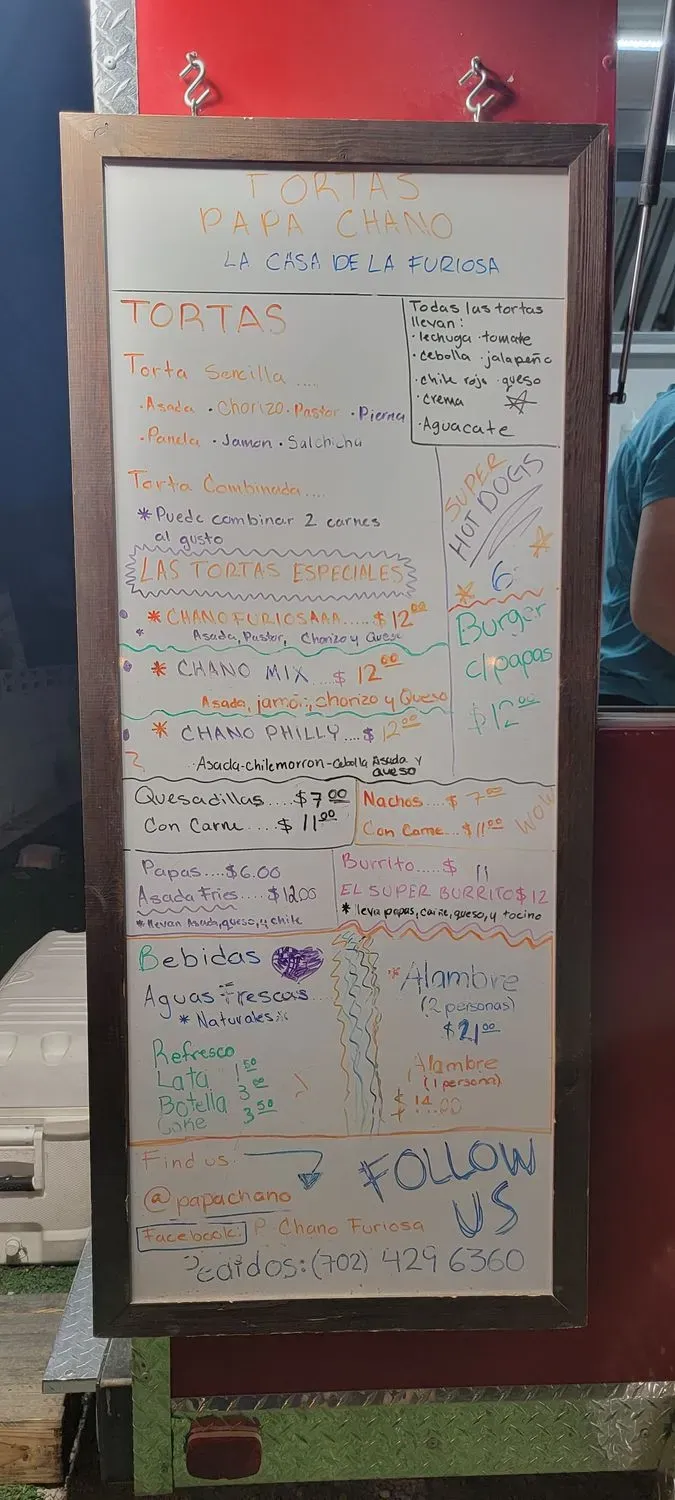 TORTAS
PAPA CHANO
LA CASA DE LA FURIOSA
TORTAS
Torta Sencilla ....
·Asada ·Chorizo·Pastor ·Pierna
·Panela ·Jamon·Salchicha
Torta Combinada....
*Puede combinar 2 carnes
al gusto
Todas las tortas
llevan:
·lechuga ·tomate
·cebolla ·jalapeño
·chile rojo ·queso
·crema
·Aguacate
SUPER
HOT DOGS
6
Burger
c/papas
$12.00
LAS TORTAS ESPECIALES
* CHANO FURIOSAAA.....$12.00
Asada, Pastor, Chorizo y Queso
* CHANO MIX...$ 12.00
Asada, jamon, chorizo y Queso
* CHANO PHILLY....$12.00
·Asada-chilemorron-cebolla Asada y
queso
Quesadillas....$7.00
Con Carne.....$ 11.00
Nachos...$ 7.00
Con Carne...$11.00
WOW
Papas....$6.00
Asada Fries....$12.00
*llevan Asada, queso, y chile
Burrito.....$ 11
EL SUPER BURRITO $12
* lleva papas, carne, queso, y tocino
Bebidas
Aguas Frescas...
* Naturales
Refresco
Lata 1.50
Botella 3.00
Coke 3.50
*Alambre
(2 personas)
$21.00
Alambre
(1 persona)
$ 14.00
Find us
@papachano
Facebook: P Chano Furiosa
FOLLOW
US
Pedidos:(702) 429 6360